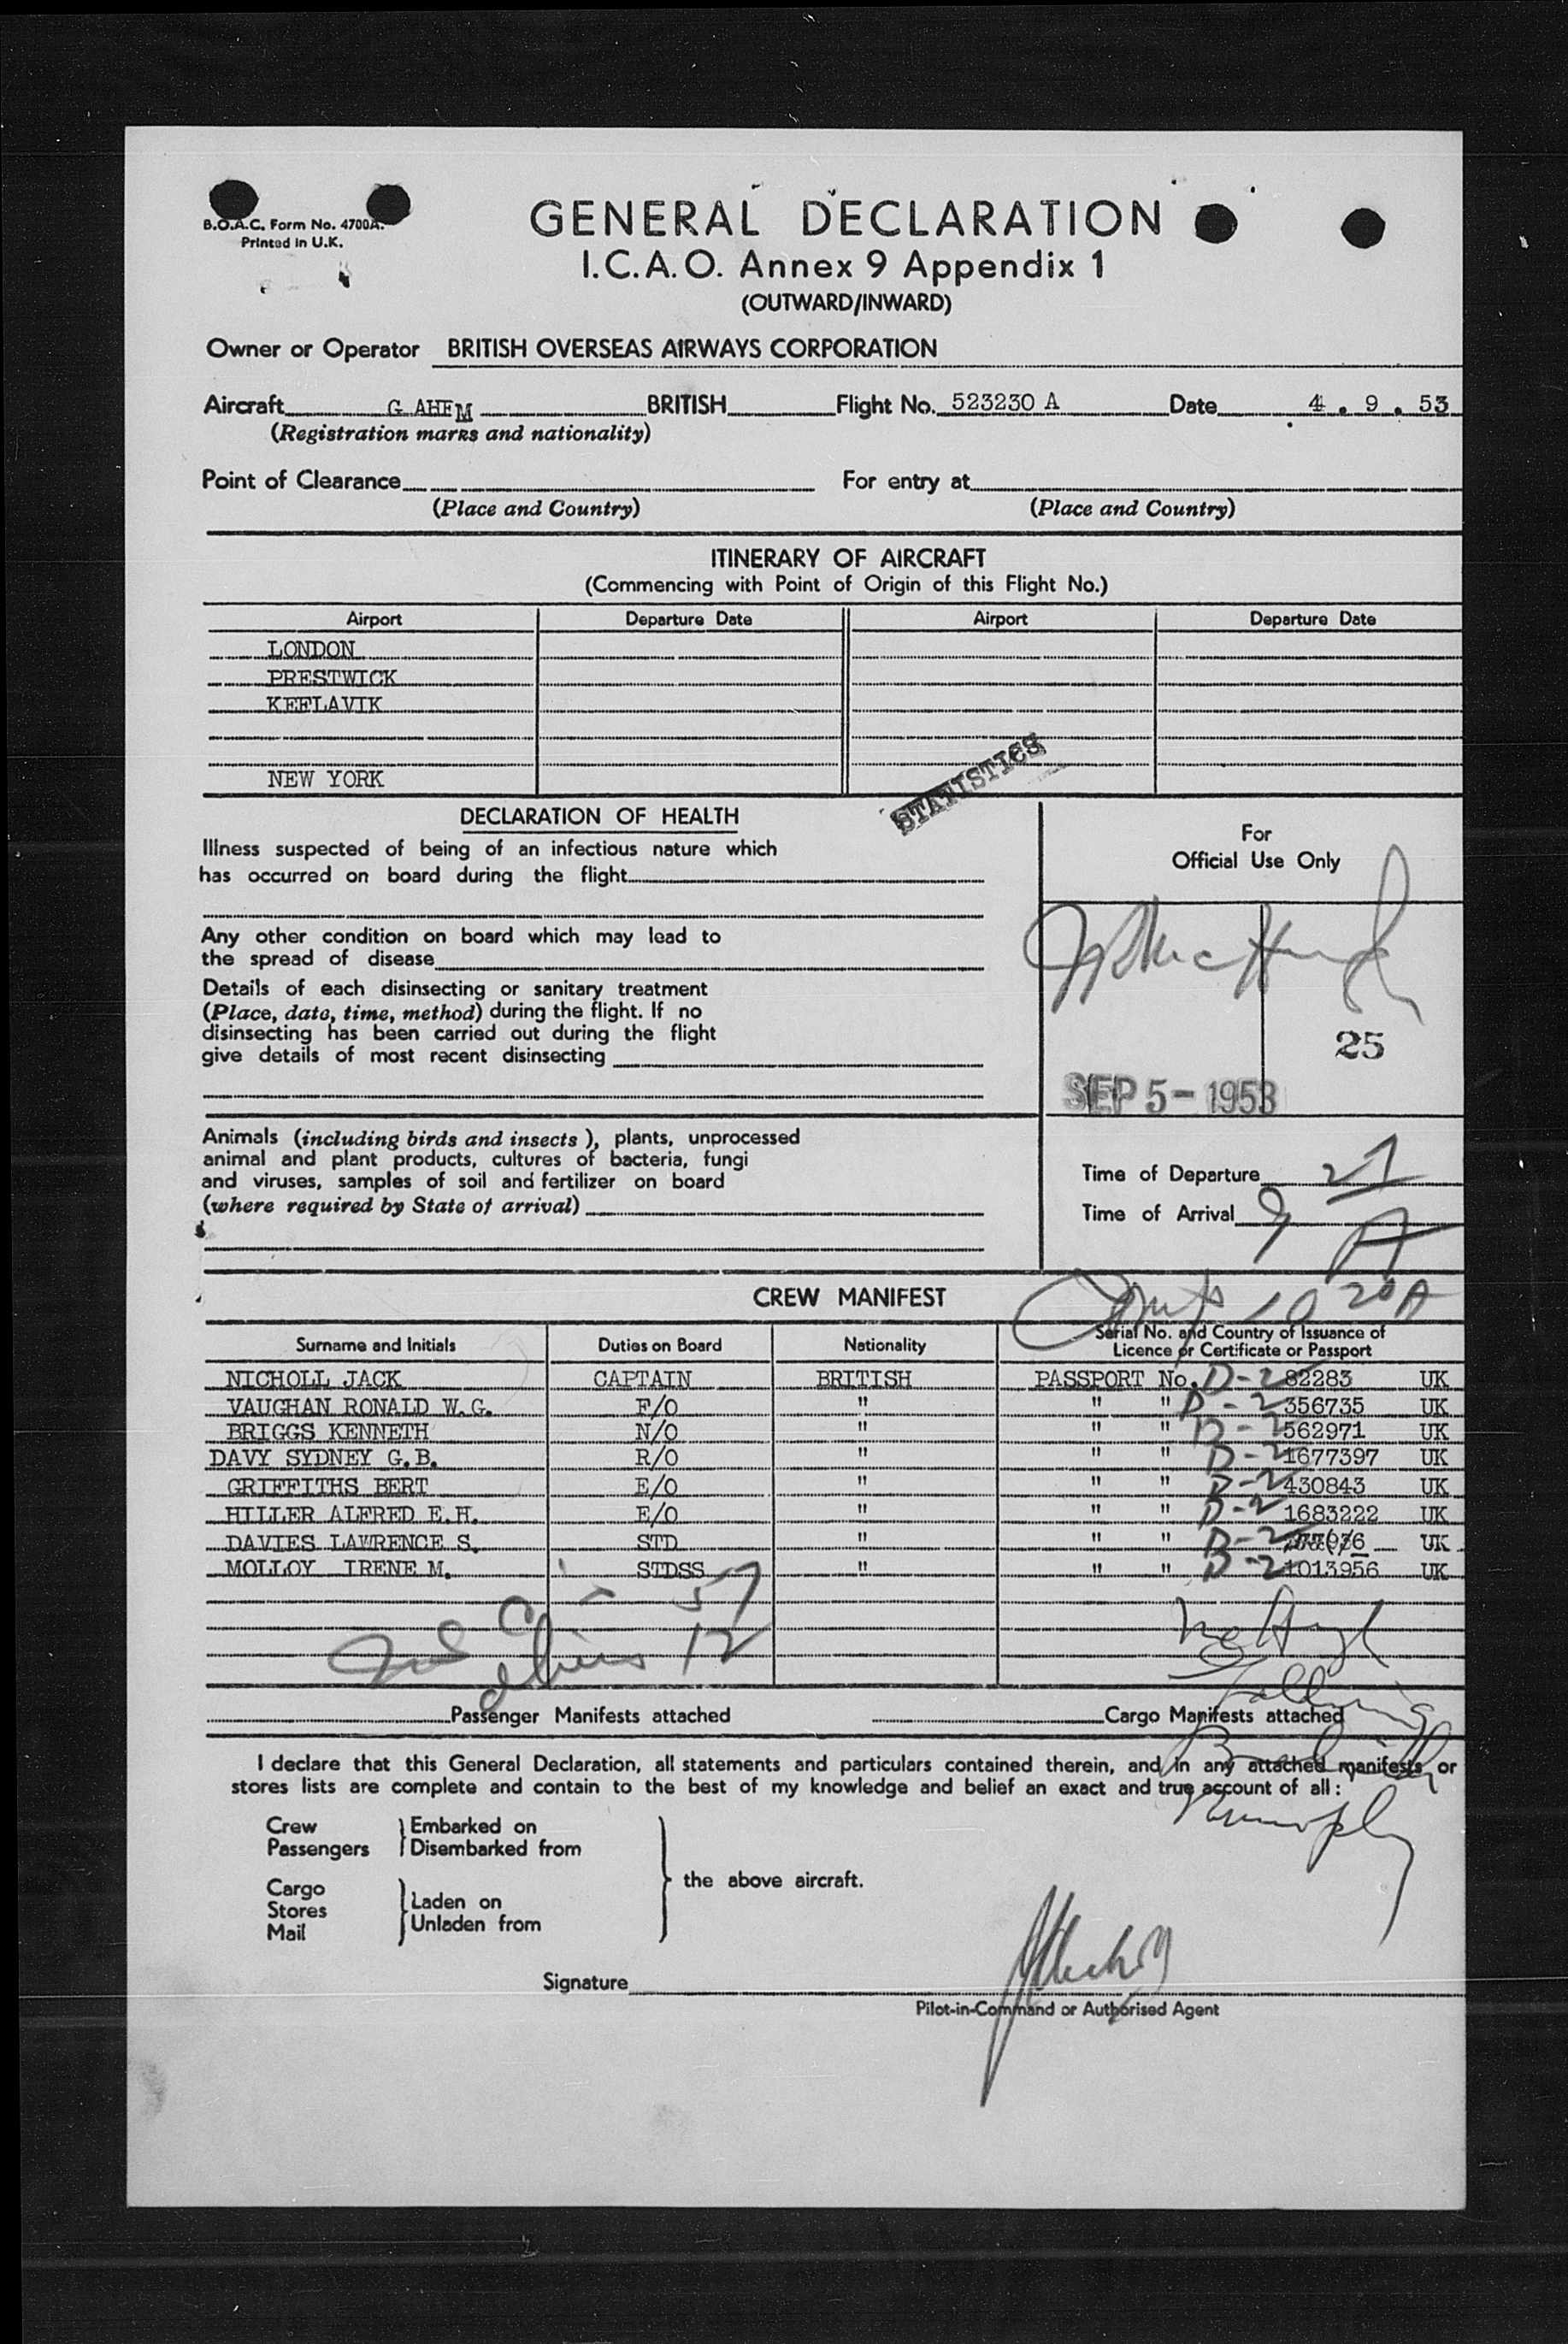 B.O.A.C. Form No. 4700A.
Printed in U.K.
GENERAL DECLARATION
I.C.A.O. Annex 9 Appendix 1
(OUTWARD/INWARD)
Owner or Operator BRITISH OVERSEAS AIRWAYS CORPORATION
Aircraft G AHEM BRITISH Flight No. 523230 A Date 4 . 9 . 53
(Registration marks and nationality)
Point of Clearance For entry at
(Place and Country) (Place and Country)
ITINERARY OF AIRCRAFT
(Commencing with Point of Origin of this Flight No.)
Airport Departure Date Airport Departure Date
LONDON
PRESTWICK
KEFLAVIK
NEW YORK
STATISTICS
DECLARATION OF HEALTH
Illness suspected of being of an infectious nature which
has occurred on board during the flight
Any other condition on board which may lead to
the spread of disease
Details of each disinsecting or sanitary treatment
(Place, date, time, method) during the flight. If no
disinsecting has been carried out during the flight
give details of most recent disinsecting
For
Official Use Only
25
SEP 5 - 1953
Animals (including birds and insects), plants, unprocessed
animal and plant products, cultures of bacteria, fungi
and viruses, samples of soil and fertilizer on board
(where required by State of arrival)
Time of Departure 27
Time of Arrival 9 A
10 20 A
CREW MANIFEST
Surname and Initials Duties on Board Nationality Serial No. and Country of Issuance of
Licence or Certificate or Passport
NICHOLL JACK CAPTAIN BRITISH PASSPORT No. D-2 82283 UK
VAUGHAN RONALD W.G. F/O " " " D-2 356735 UK
BRIGGS KENNETH N/O " " " D-2 562971 UK
DAVY SYDNEY G.B. R/O " " " D-2 1677397 UK
GRIFFITHS BERT E/O " " " D-2 430843 UK
HILLER ALFRED E.H. E/O " " " D-2 1683222 UK
DAVIES LAWRENCE S. STD " " " D-2 UK
MOLLOY IRENE M. STDSS " " " D-2 1013956 UK
57
12
Passenger Manifests attached Cargo Manifests attached
I declare that this General Declaration, all statements and particulars contained therein, and in any attached manifests or
stores lists are complete and contain to the best of my knowledge and belief an exact and true account of all:
Crew Embarked on
Passengers Disembarked from
the above aircraft.
Cargo
Stores Laden on
Mail Unladen from
Signature
Pilot-in-Command or Authorised Agent